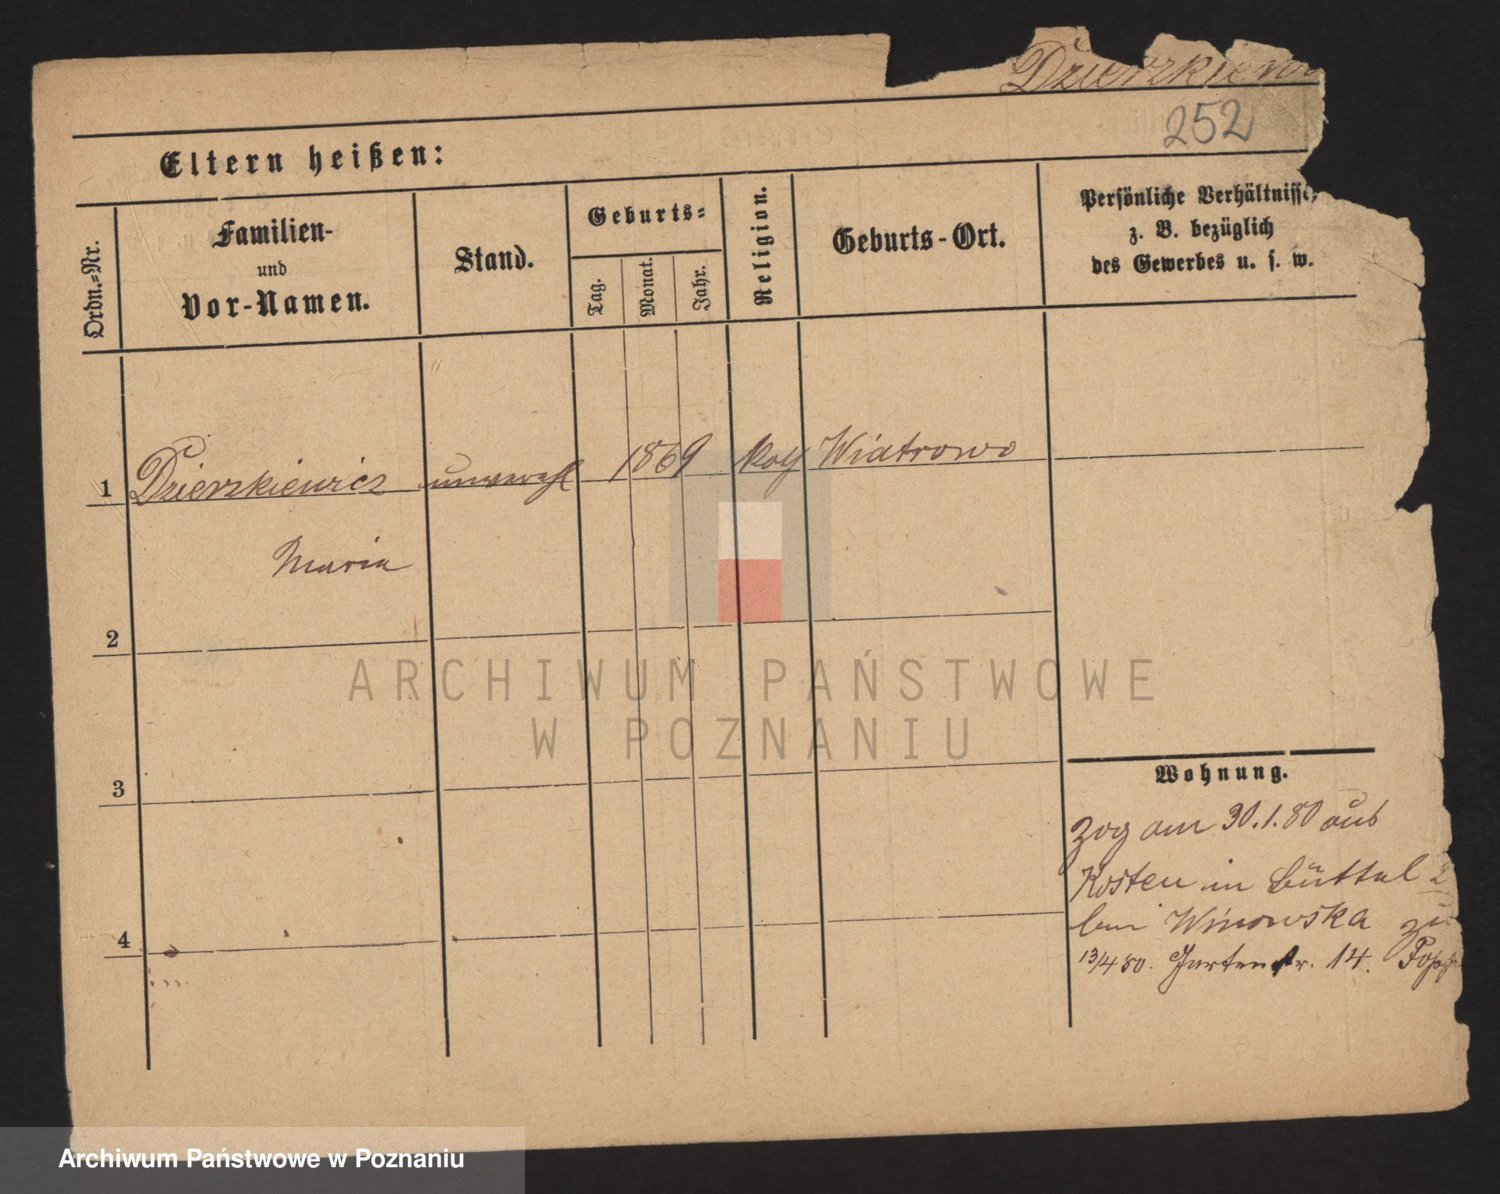 Dzierzkiew
252
Eltern heißen:
Ordn.=Nr.
Familien-
und
Vor-Namen.
Stand.
Geburts=
Tag.
Monat.
Jahr.
Religion.
Geburts-Ort.
Persönliche Verhältnisse,
z. B. bezüglich
des Gewerbes u. s. w.
1 Dzierzkiewicz 1869 Wiatrowo
Maria
2
3
4
Wohnung.
zog am 30.1.80 aus
Kosten in Büttel 2
bei Winowska zu
13/4 80. Gartenstr. 14.
ARCHIWUM PAŃSTWOWE
W POZNANIU
Archiwum Państwowe w Poznaniu